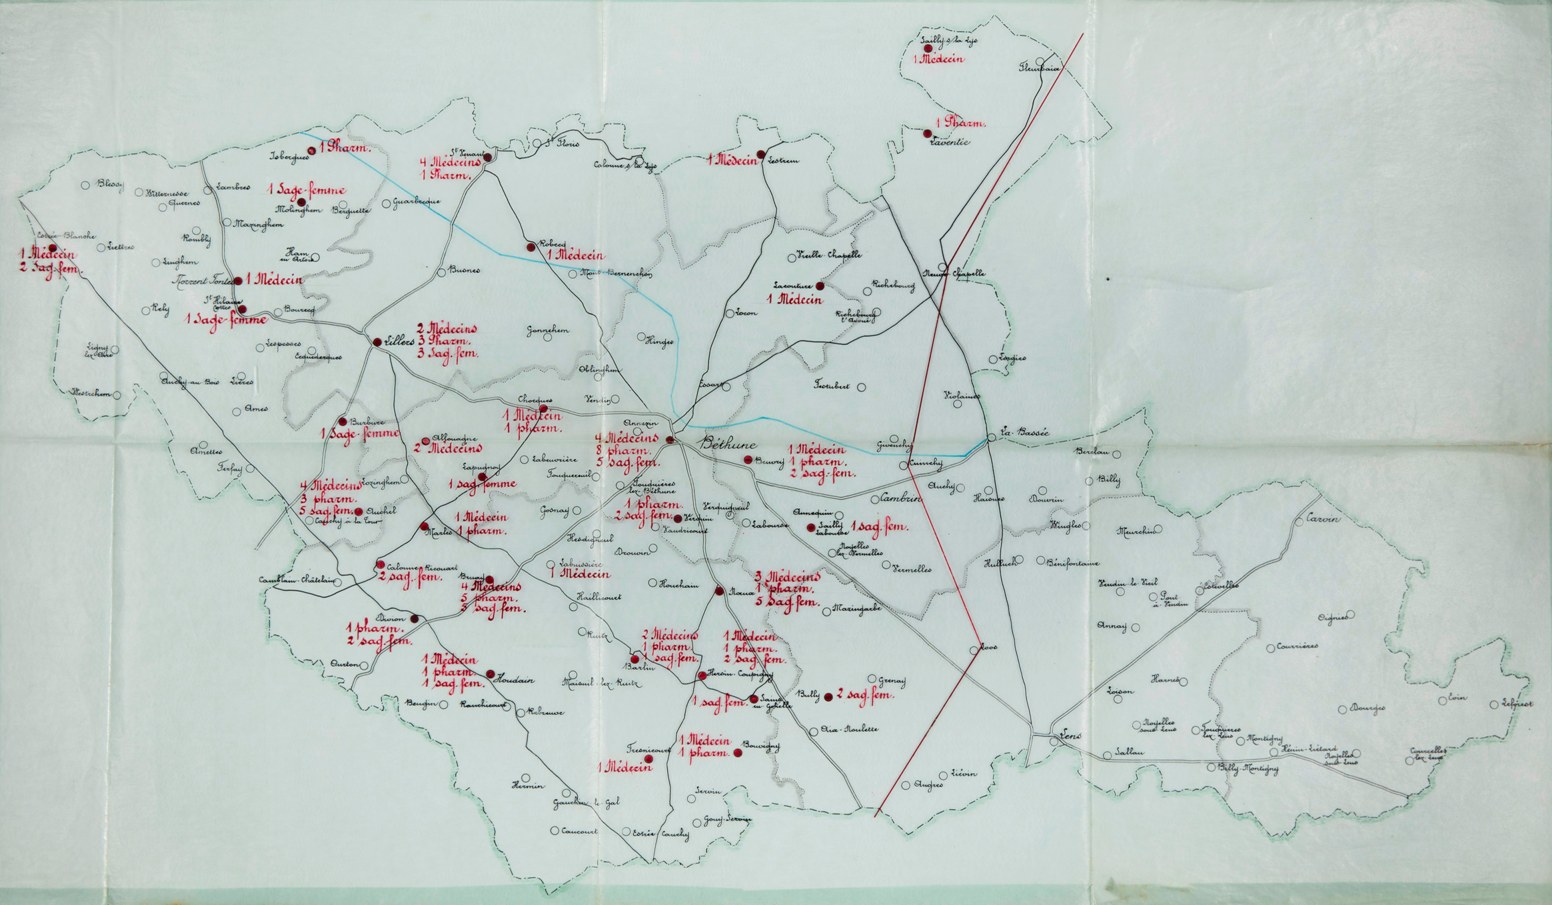 Sailly-s-la Lys
1 Médecin
Fleurbaix
1 Pharm.
Laventie
Isbergues
1 Pharm.
St Venant
4 Médecins
1 Pharm.
St Floris
Calonne-s-la Lys
1 Médecin
Lestrem
Blessy
Witternesse
Quernes
Lambres
1 Sage-femme
Molinghem
Berguette
Guarbecque
Mazinghem
Rombly
Estrée-Blanche
1 Médecin
2 Sag. fem.
Liettres
Linghem
Ham
en Artois
Norrent-Fontes
1 Médecin
St Hilaire
Cottes
1 Sage-femme
Rely
Bourecq
Busnes
Robecq
1 Médecin
Mont-Bernenchon
Vieille Chapelle
Lacouture
1 Médecin
Richebourg
Richebourg
l'Avoué
Neuve Chapelle
Locon
Hinges
Gonnehem
Lillers
2 Médecins
3 Pharm.
3 Sag. fem.
Lespesses
Ecquedecques
Ligny
lez-Aire
Westrehem
Auchy-au-Bois
Lières
Ames
Oblinghem
Vendin
Essars
Festubert
Violaines
Lorgies
Chocques
1 Médecin
1 pharm.
Annezin
Burbure
1 Sage-femme
Allouagne
2 Médecins
4 Médecins
8 pharm.
5 sag. fem.
Béthune
Beuvry
1 Médecin
1 pharm.
2 sag. fem.
Givenchy
Cuinchy
La Bassée
Amettes
Ferfay
Lozinghem
4 Médecins
3 pharm.
5 sag. fem.
Auchel
Cauchy à la Tour
Lapugnoy
1 sag. femme
Labeuvrière
Fouquereuil
Fouquières
lez-Béthune
Gosnay
1 pharm.
2 sag. fem.
Verquin
Verquigneul
Vaudricourt
Labourse
Cambrin
Annequin
Sailly
Labourse
1 sag. fem.
Noyelles
lez-Vermelles
Vermelles
Auchy
Haisnes
Douvrin
Billy
Berclau
Wingles
Meurchin
Hulluch
Bénifontaine
Carvin
Marles
1 Médecin
1 pharm.
Hesdigneul
Drouvin
Labuissière
1 Médecin
Houchain
Calonne-Ricouart
2 sag. fem.
Camblain-Châtelain
Bruay
4 Médecins
5 pharm.
5 sag. fem.
Haillicourt
Nœux
3 Médecins
1 pharm.
5 Sag. fem.
Mazingarbe
Vendin-le-Vieil
Pont
à-Vendin
Estevelles
Annay
Oignies
Courrières
Divion
1 pharm.
2 sag. fem.
Ourton
Ruitz
2 Médecins
1 pharm.
1 sag. fem.
Barlin
1 Médecin
1 pharm.
2 sag. fem.
Hersin-Coupigny
Loos
1 Médecin
1 pharm.
1 sag. fem.
Houdain
Maisnil-lez-Ruitz
1 sag. fem.
Sains
en Gohelle
Bully
2 sag. fem.
Grenay
Beugin
Ranchicourt
Rebreuve
Aix-Noulette
Loison
Harnes
Dourges
Evin
Leforest
Noyelles
sous-Lens
Fouquières
lez-Lens
Montigny
Hénin-Liétard
Noyelles
Courcelles
lez-Lens
Lens
Sallau
Billy-Montigny
1 Médecin
1 pharm.
Bouvigny
Fresnicourt
1 Médecin
Liévin
Angres
Hermin
Gauchin-le-Gal
Servin
Gouy-Servin
Caucourt
Estrée-Cauchy